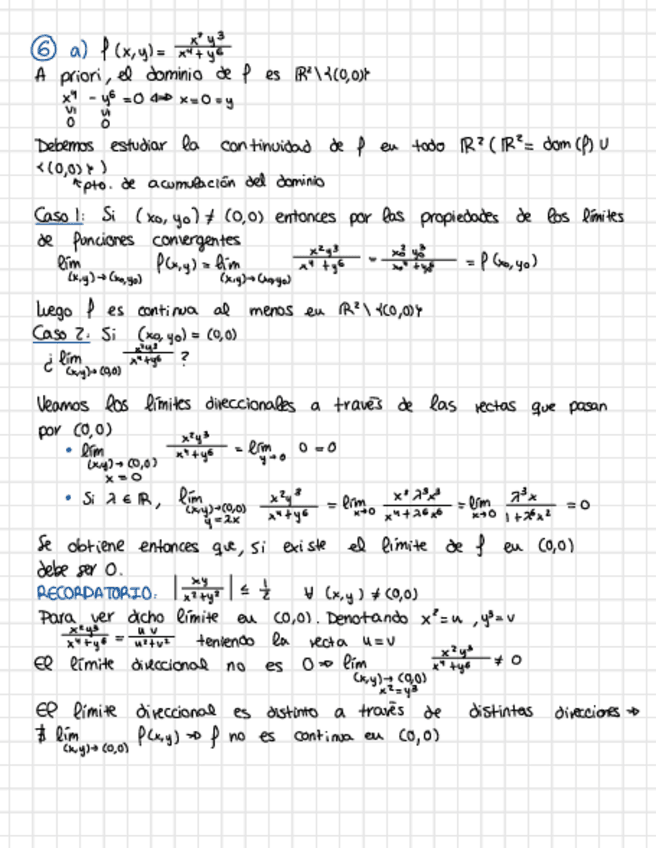 ⑥ a) f(x,y) = x²y³ / x⁴+y⁶
A priori, el dominio de f es ℝ²\{(0,0)}
x⁴ - y⁶ = 0 ⟺ x=0=y
≥0 ≥0
Debemos estudiar la continuidad de f en todo ℝ² (ℝ² = dom(f) ∪
{(0,0)})
↖pto. de acumulación del dominio
Caso 1: Si (x₀,y₀) ≠ (0,0) entonces por las propiedades de los límites
de funciones convergentes
lím (x,y)→(x₀,y₀) f(x,y) = lím (x,y)→(x₀,y₀) x²y³ / x⁴+y⁶ = x₀²y₀³ / x₀⁴+y₀⁶ = f(x₀,y₀)
Luego f es continua al menos en ℝ²\{(0,0)}
Caso 2: Si (x₀,y₀) = (0,0)
¿ lím (x,y)→(0,0) x²y³ / x⁴+y⁶ ?
Veamos los límites direccionales a través de las rectas que pasan
por (0,0)
• lím (x,y)→(0,0) x=0 x²y³ / x⁴+y⁶ = lím y→0 0 = 0
• Si λ ∈ ℝ, lím (x,y)→(0,0) y=λx x²y³ / x⁴+y⁶ = lím x→0 x²λ³x³ / x⁴+λ⁶x⁶ = lím x→0 λ³x / 1+λ⁶x² = 0
Se obtiene entonces que, si existe el límite de f en (0,0)
debe ser 0.
RECORDATORIO: |xy / x²+y²| ≤ 1/2 ∀ (x,y) ≠ (0,0)
Para ver dicho límite en (0,0). Denotando x²=u, y³=v
x²y³ / x⁴+y⁶ = uv / u²+v² teniendo la recta u=v
El límite direccional no es 0 ⇒ lím (x,y)→(0,0) x²=y³ x²y³ / x⁴+y⁶ ≠ 0
El límite direccional es distinto a través de distintas direcciones ⇒
∄ lím (x,y)→(0,0) f(x,y) ⇒ f no es continua en (0,0)